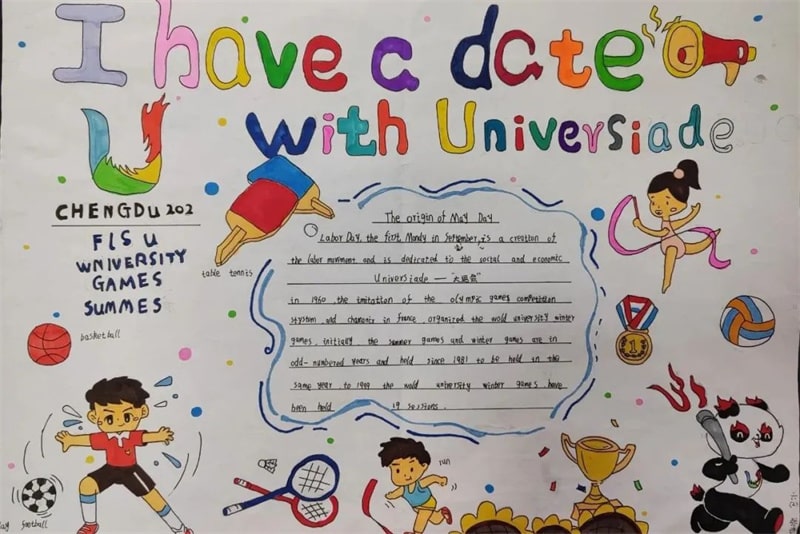 I have a date
with Universiade
CHENGDU 202
FISU
WNIVERSITY
GAMES
SUMMES
table tennis
basketball
The origin of May Day
Labor Day, the first Mondy in September, is a creation of
the labor movement and is dedicated to the social and economic
Universiade — "大运会"
in 1960 the imitation of the olympic games competition
system and chamonix in france organized the wold university winter
games. initially the summer games and winter games are in
odd-numbered years and held since 1981 to be held in the
same year. to 1999 the wold university winter games have
been held 19 sessions.
1
run
football